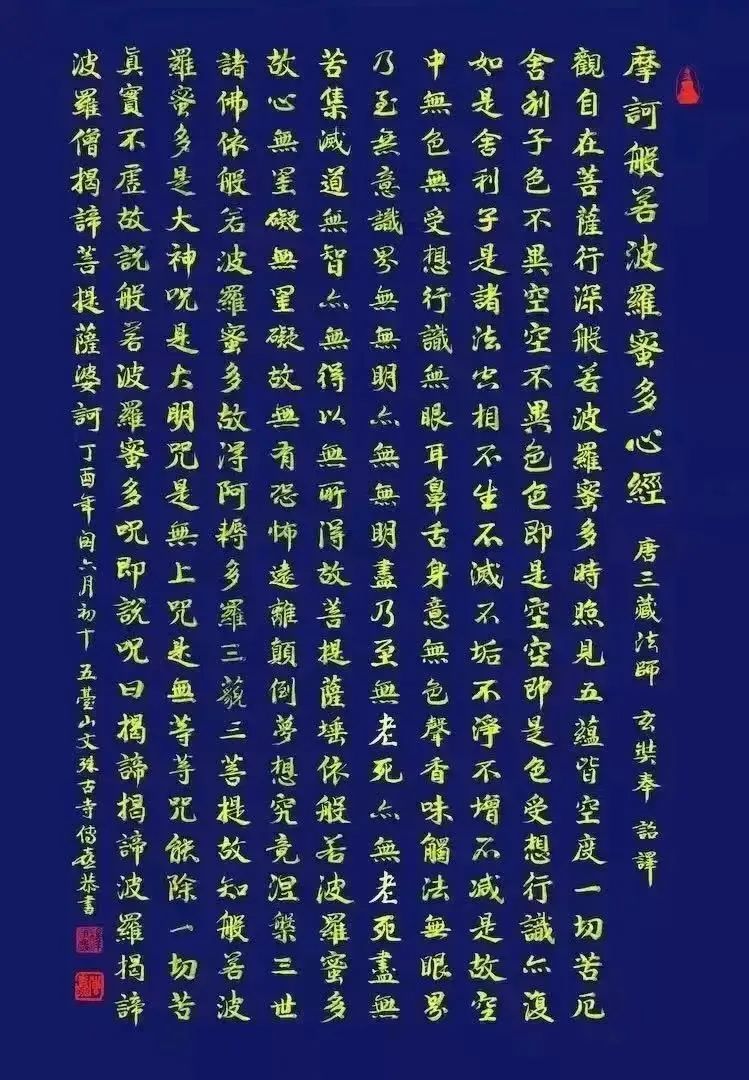 摩訶般若波羅蜜多心經 唐三藏法師 玄奘奉 詔譯
觀自在菩薩行深般若波羅蜜多時照見五蘊皆空度一切苦厄
舍利子色不異空空不異色色即是空空即是色受想行識亦復
如是舍利子是諸法空相不生不滅不垢不淨不增不減是故空
中無色無受想行識無眼耳鼻舌身意無色聲香味觸法無眼界
乃至無意識界無無明亦無無明盡乃至無老死亦無老死盡無
苦集滅道無智亦無得以無所得故菩提薩埵依般若波羅蜜多
故心無罣礙無罣礙故無有恐怖遠離顛倒夢想究竟涅槃三世
諸佛依般若波羅蜜多故得阿耨多羅三藐三菩提故知般若波
羅蜜多是大神呪是大明咒是無上咒是無等等咒能除一切苦
眞實不虛故說般若波羅蜜多呪即說呪曰揭諦揭諦波羅揭諦
波羅僧揭諦菩提薩婆訶 丁酉年六月初十 五臺山文殊古寺傳恭書